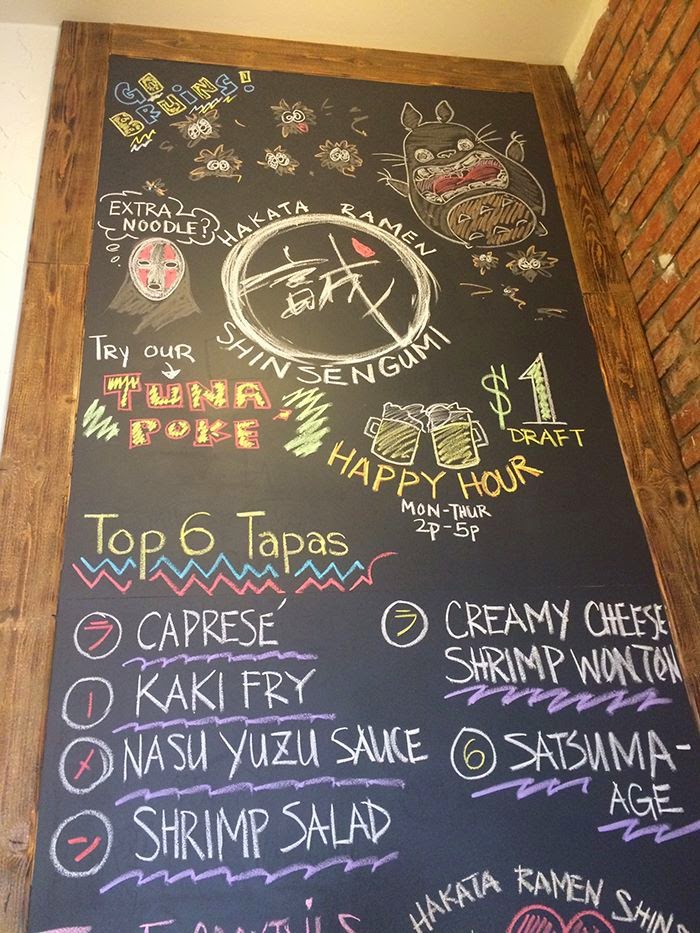 GO
BRUINS!
EXTRA
NOODLE?
HAKATA RAMEN
誠
SHINSENGUMI
TRY OUR
TUNA
POKE
$1
DRAFT
HAPPY HOUR
MON-THUR
2P-5P
Top 6 Tapas
ラ CAPRESÉ
ー KAKI FRY
メ NASU YUZU SAUCE
ン SHRIMP SALAD
ラ CREAMY CHEESE
SHRIMP WONTON
6 SATSUMA-
AGE
HAKATA RAMEN SHINS